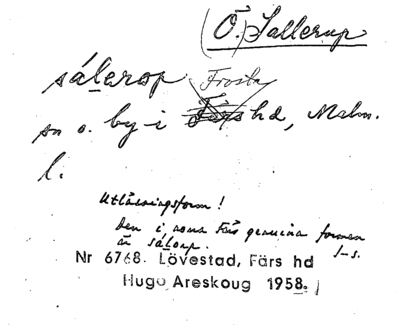 (Ö.) Sallerup
sálerop Frosta
sn o. by i Färs hd, Malm.
l.
Utlåningsform!
Den i norra Färs genuina formen
är sálorp. I-s.
Nr 6768. Lövestad, Färs hd
Hugo Areskoug 1958.